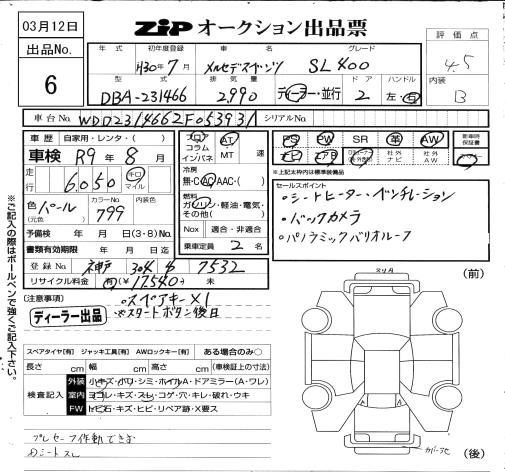 03月12日
ZIP オークション出品票
出品No. 6
評価点 4.5
内装 B
年式 初年度登録 車名 グレード
H30年7月 メルセデスベンツ SL400
型式 排気量 ドア ハンドル
DBA-231466 2,990 ディーラー・並行 2 左・右
車台No. WDD2314662F053931 シリアルNo.
車歴 自家用・レンタ・( )
車検 R9年8月
走行 6,050 キロ マイル
色(元色) パール カラーNo. 799 内装色
予備検 年 月 日(3・8)No.
書類有効期限 年 月 日迄
登録No. 神戸 304 も 7532
リサイクル料金 有(¥17540) 未
フロア コラム インパネ AT MT 速
冷房 無・C・AC・AAC・( )
燃料 ガソリン・軽油・電気・その他( )
Nox 適合・非適合
乗車定員 2 名
PS PW SR 革 AW 新車時保証書
ナビ エアB 社外ナビ 社外AW
※上記太枠内は標準装備品
セールスポイント
・シートヒーター・ベンチレーション
・バックカメラ
・パノラミックバリオルーフ
※ご記入の際はボールペンで強くご記入下さい。
(注意事項)
ディーラー出品
○スペアキー×1
※スタートボタン後日
スペアタイヤ[有] ジャッキ工具[有] AWロックキー[有] ある場合のみ○
長さ cm 幅 cm 高さ cm (車検証上の寸法)
検査記入
外装 小キズ・小ハリ・シミ・ホイルA・ドアミラー(A・ワレ)
室内 ヨゴレ・キズ・スレ・コゲ・穴・キレ・破れ・ウキ
FW トビ石・キズ・ヒビ・リペア跡・X要ス
プレセーフ作動できず
Dシートスレ
(前)
(後)